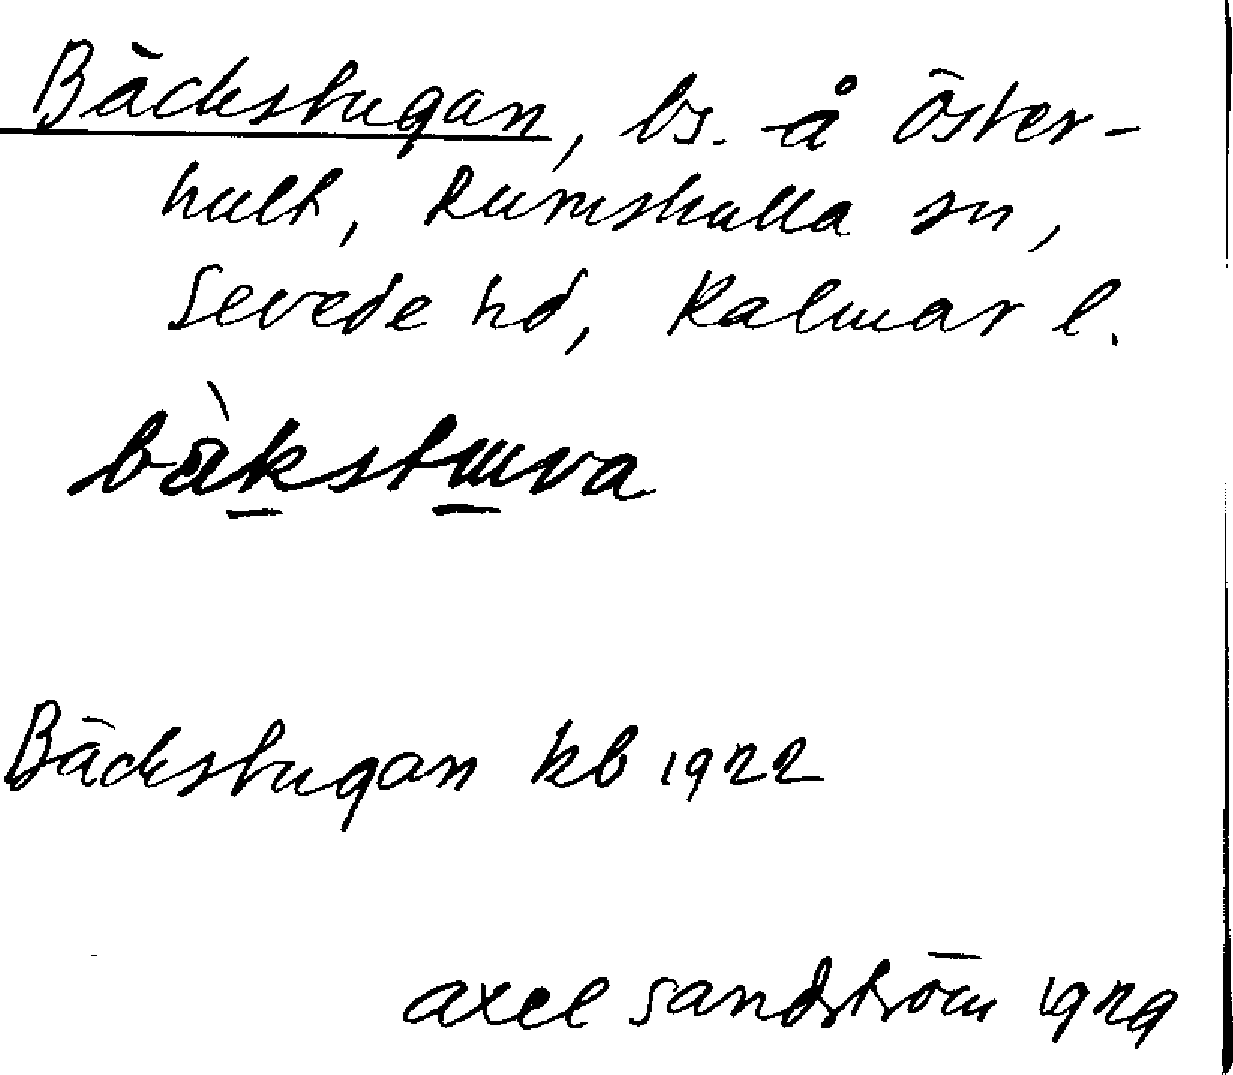 Bäckstugan, bs. å Öster-
hult, Rumskulla sn,
Sevede hd, Kalmar l.
bä̀kstuva
Bäckstugan kb 1922
Axel Sandström 1929